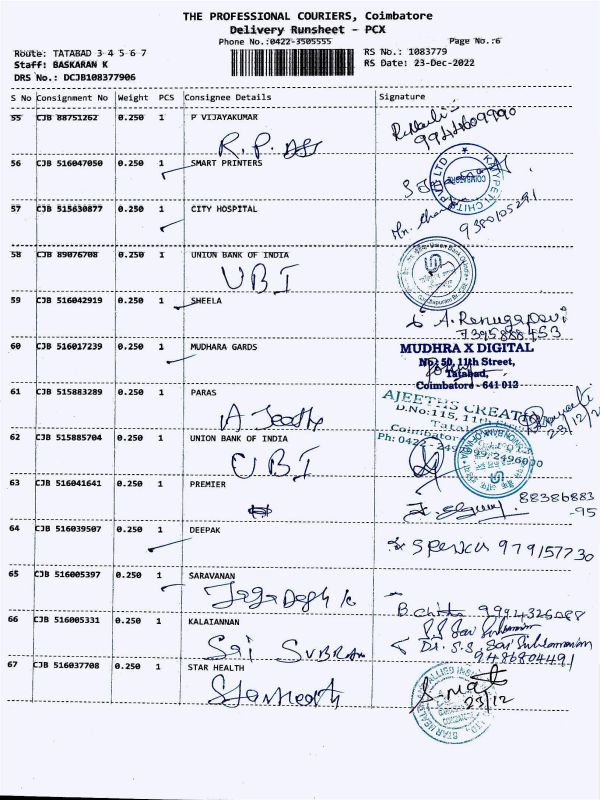 THE PROFESSIONAL COURIERS, Coimbatore
Delivery Runsheet - PCX
Phone No.:0422-3505555 Page No.:6
Route: TATABAD 3 4 5 6 7 RS No.: 1083779
Staff: BASKARAN K RS Date: 23-Dec-2022
DRS No.: DCJB108377906
S No Consignment No Weight PCS Consignee Details Signature
55 CJB 88751262 0.250 1 P VIJAYAKUMAR
9944609990
R.P.
56 CJB 516047050 0.250 1 SMART PRINTERS
COIMBATORE
57 CJB 515630877 0.250 1 CITY HOSPITAL
9380105291
58 CJB 89076708 0.250 1 UNION BANK OF INDIA
UBI
59 CJB 516042919 0.250 1 SHEELA
A. Renugadevi
7395888453
60 CJB 516017239 0.250 1 MUDHARA GARDS
MUDHRA X DIGITAL
No: 50, 11th Street,
Tatabad,
Coimbatore - 641 012
61 CJB 515883289 1 0.250 1 PARAS
AJEETHS CREATI
D.No:115, 11th
23/12/2
62 CJB 515885704 0.250 1 UNION BANK OF INDIA
UBI
Ph: 0422-249
2496000
63 CJB 516041641 0.250 1 PREMIER
88386883
-95
64 CJB 516039507 0.250 1 DEEPAK
979157730
65 CJB 516005397 0.250 1 SARAVANAN
B. Chitra 9994326088
66 CJB 516005331 0.250 1 KALAIANNAN
Sai SUBRAM
Dr. S.S. Sai Subramaniam
9486804491
67 CJB 516037708 0.250 1 STAR HEALTH
Star Health
23/12